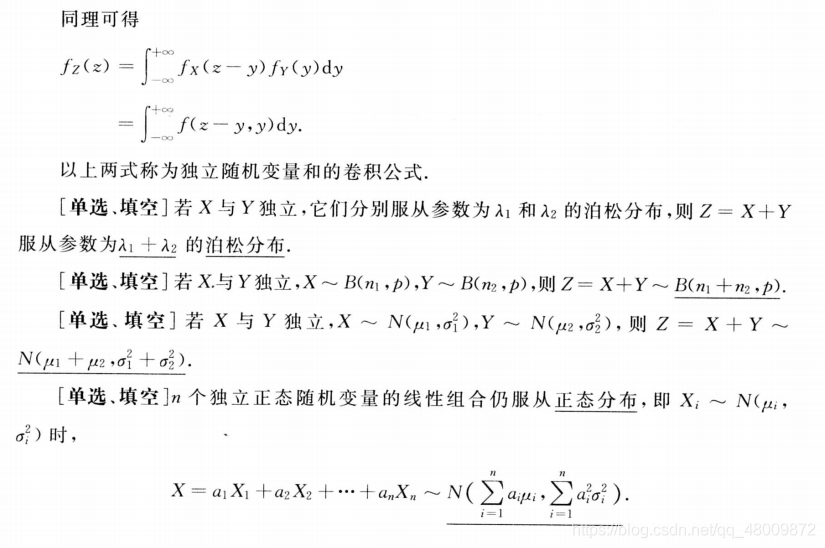 同理可得
f_Z(z) = ∫_{-∞}^{+∞} f_X(z-y)f_Y(y)dy
= ∫_{-∞}^{+∞} f(z-y,y)dy.
以上两式称为独立随机变量和的卷积公式.
[单选、填空]若 X 与 Y 独立,它们分别服从参数为 λ₁ 和 λ₂ 的泊松分布,则 Z = X+Y
服从参数为λ₁+λ₂ 的泊松分布.
[单选、填空]若 X 与 Y 独立,X ~ B(n₁,p),Y ~ B(n₂,p),则 Z = X+Y ~ B(n₁+n₂,p).
[单选、填空]若 X 与 Y 独立,X ~ N(μ₁,σ₁²),Y ~ N(μ₂,σ₂²),则 Z = X + Y ~
N(μ₁+μ₂,σ₁²+σ₂²).
[单选、填空]n 个独立正态随机变量的线性组合仍服从正态分布,即 Xᵢ ~ N(μᵢ,
σᵢ²)时,
X = a₁X₁+a₂X₂+⋯+aₙXₙ ~ N(∑_{i=1}^{n} aᵢμᵢ, ∑_{i=1}^{n} aᵢ²σᵢ²).
https://blog.csdn.net/qq_48009872